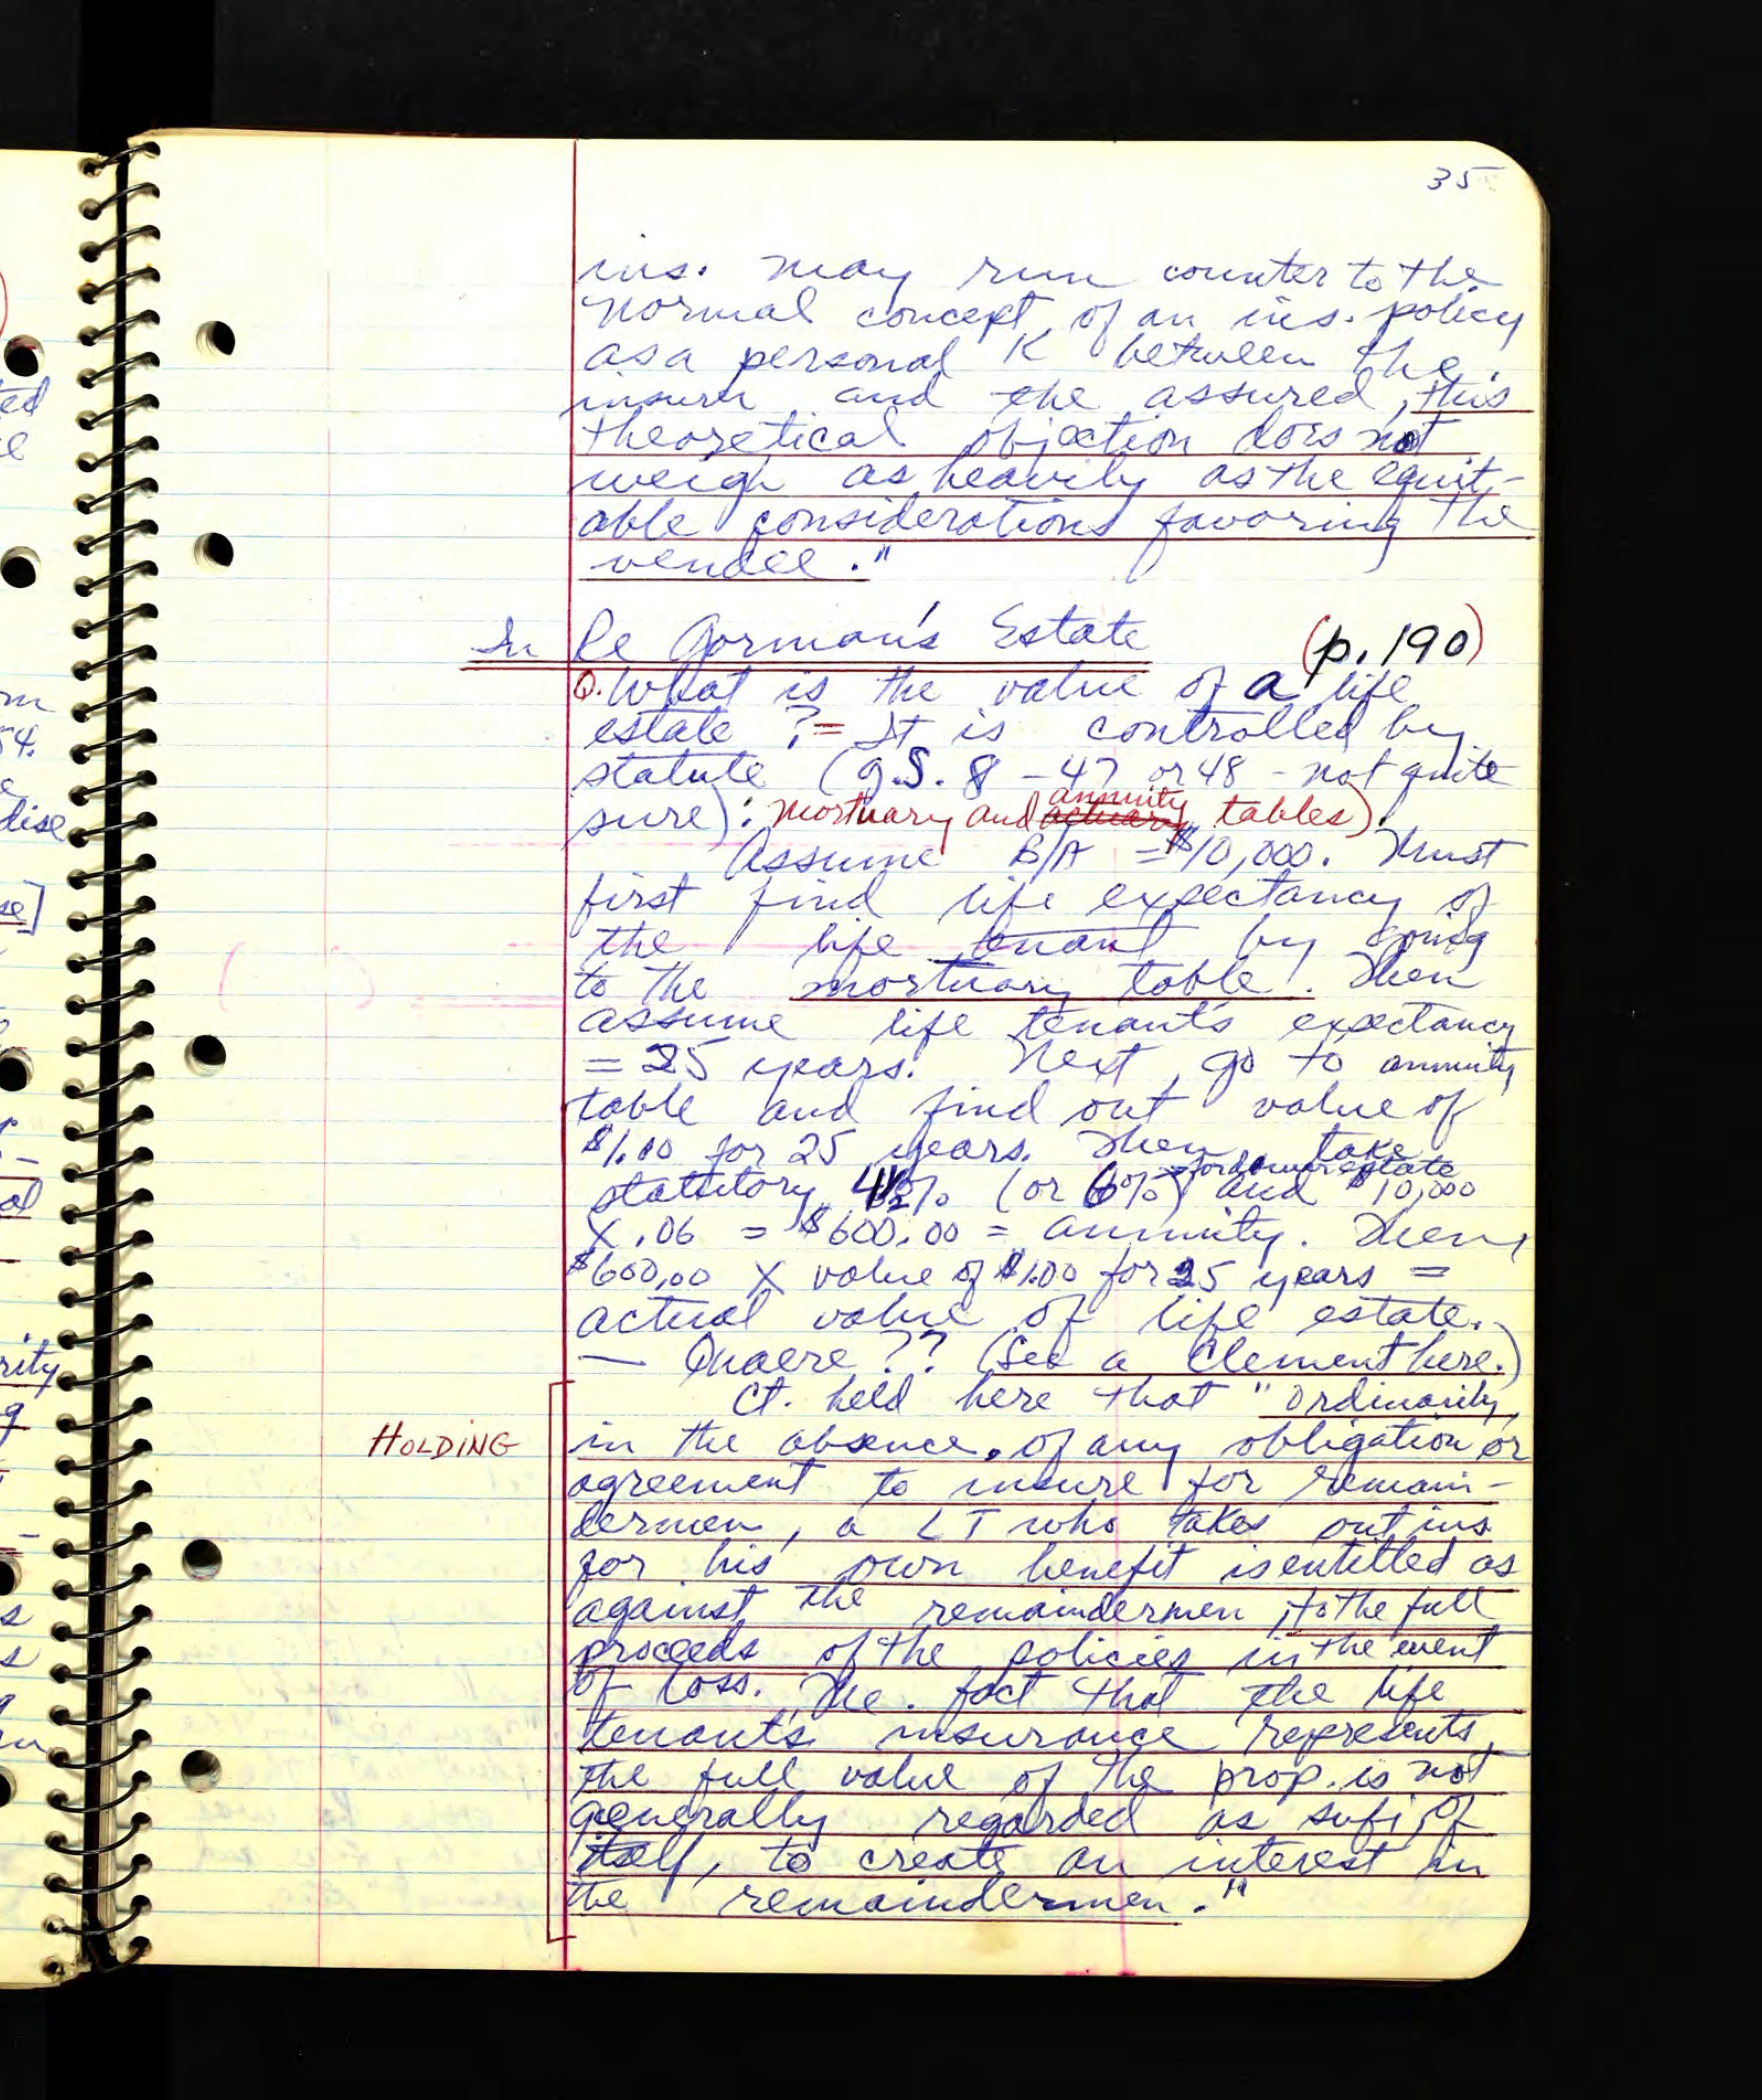 35
ins. may run counter to the
normal concept of an ins. policy
as a personal K between the
insurer and the assured, this
theoretical objection does not
weigh as heavily as the equit-
able considerations favoring the
vendee."
In Re Gorman's Estate (p. 190)
Q. What is the value of a life
estate? = It is controlled by
statute (G.S. 8-47 or 48 - not quite
sure): mortuary and annuity tables).
Assume B/A = $10,000. Must
first find life expectancy of
the life tenant by going
to the mortuary table. Then
assume life tenant's expectancy
= 25 years. Next, go to annuity
table and find out value of
$1.00 for 25 years. Then take
for dower estate
statutory 4½% (or 6%) and $10,000
X .06 = $600.00 = annuity. Then,
$600.00 X value of $1.00 for 25 years =
actual value of life estate.
— Quaere?? (See a Clement here.)
Ct. held here that "ordinarily,
HOLDING
in the absence of any obligation or
agreement to insure for remain-
dermen, a LT who takes out ins
for his own benefit is entitled as
against the remaindermen, to the full
proceeds of the policies in the event
of loss. The fact that the life
tenant's insurance represents
the full value of the prop. is not
generally regarded as sufi, of
itself, to create an interest in
the remaindermen."
ted
54.
dise
se]
al
rity